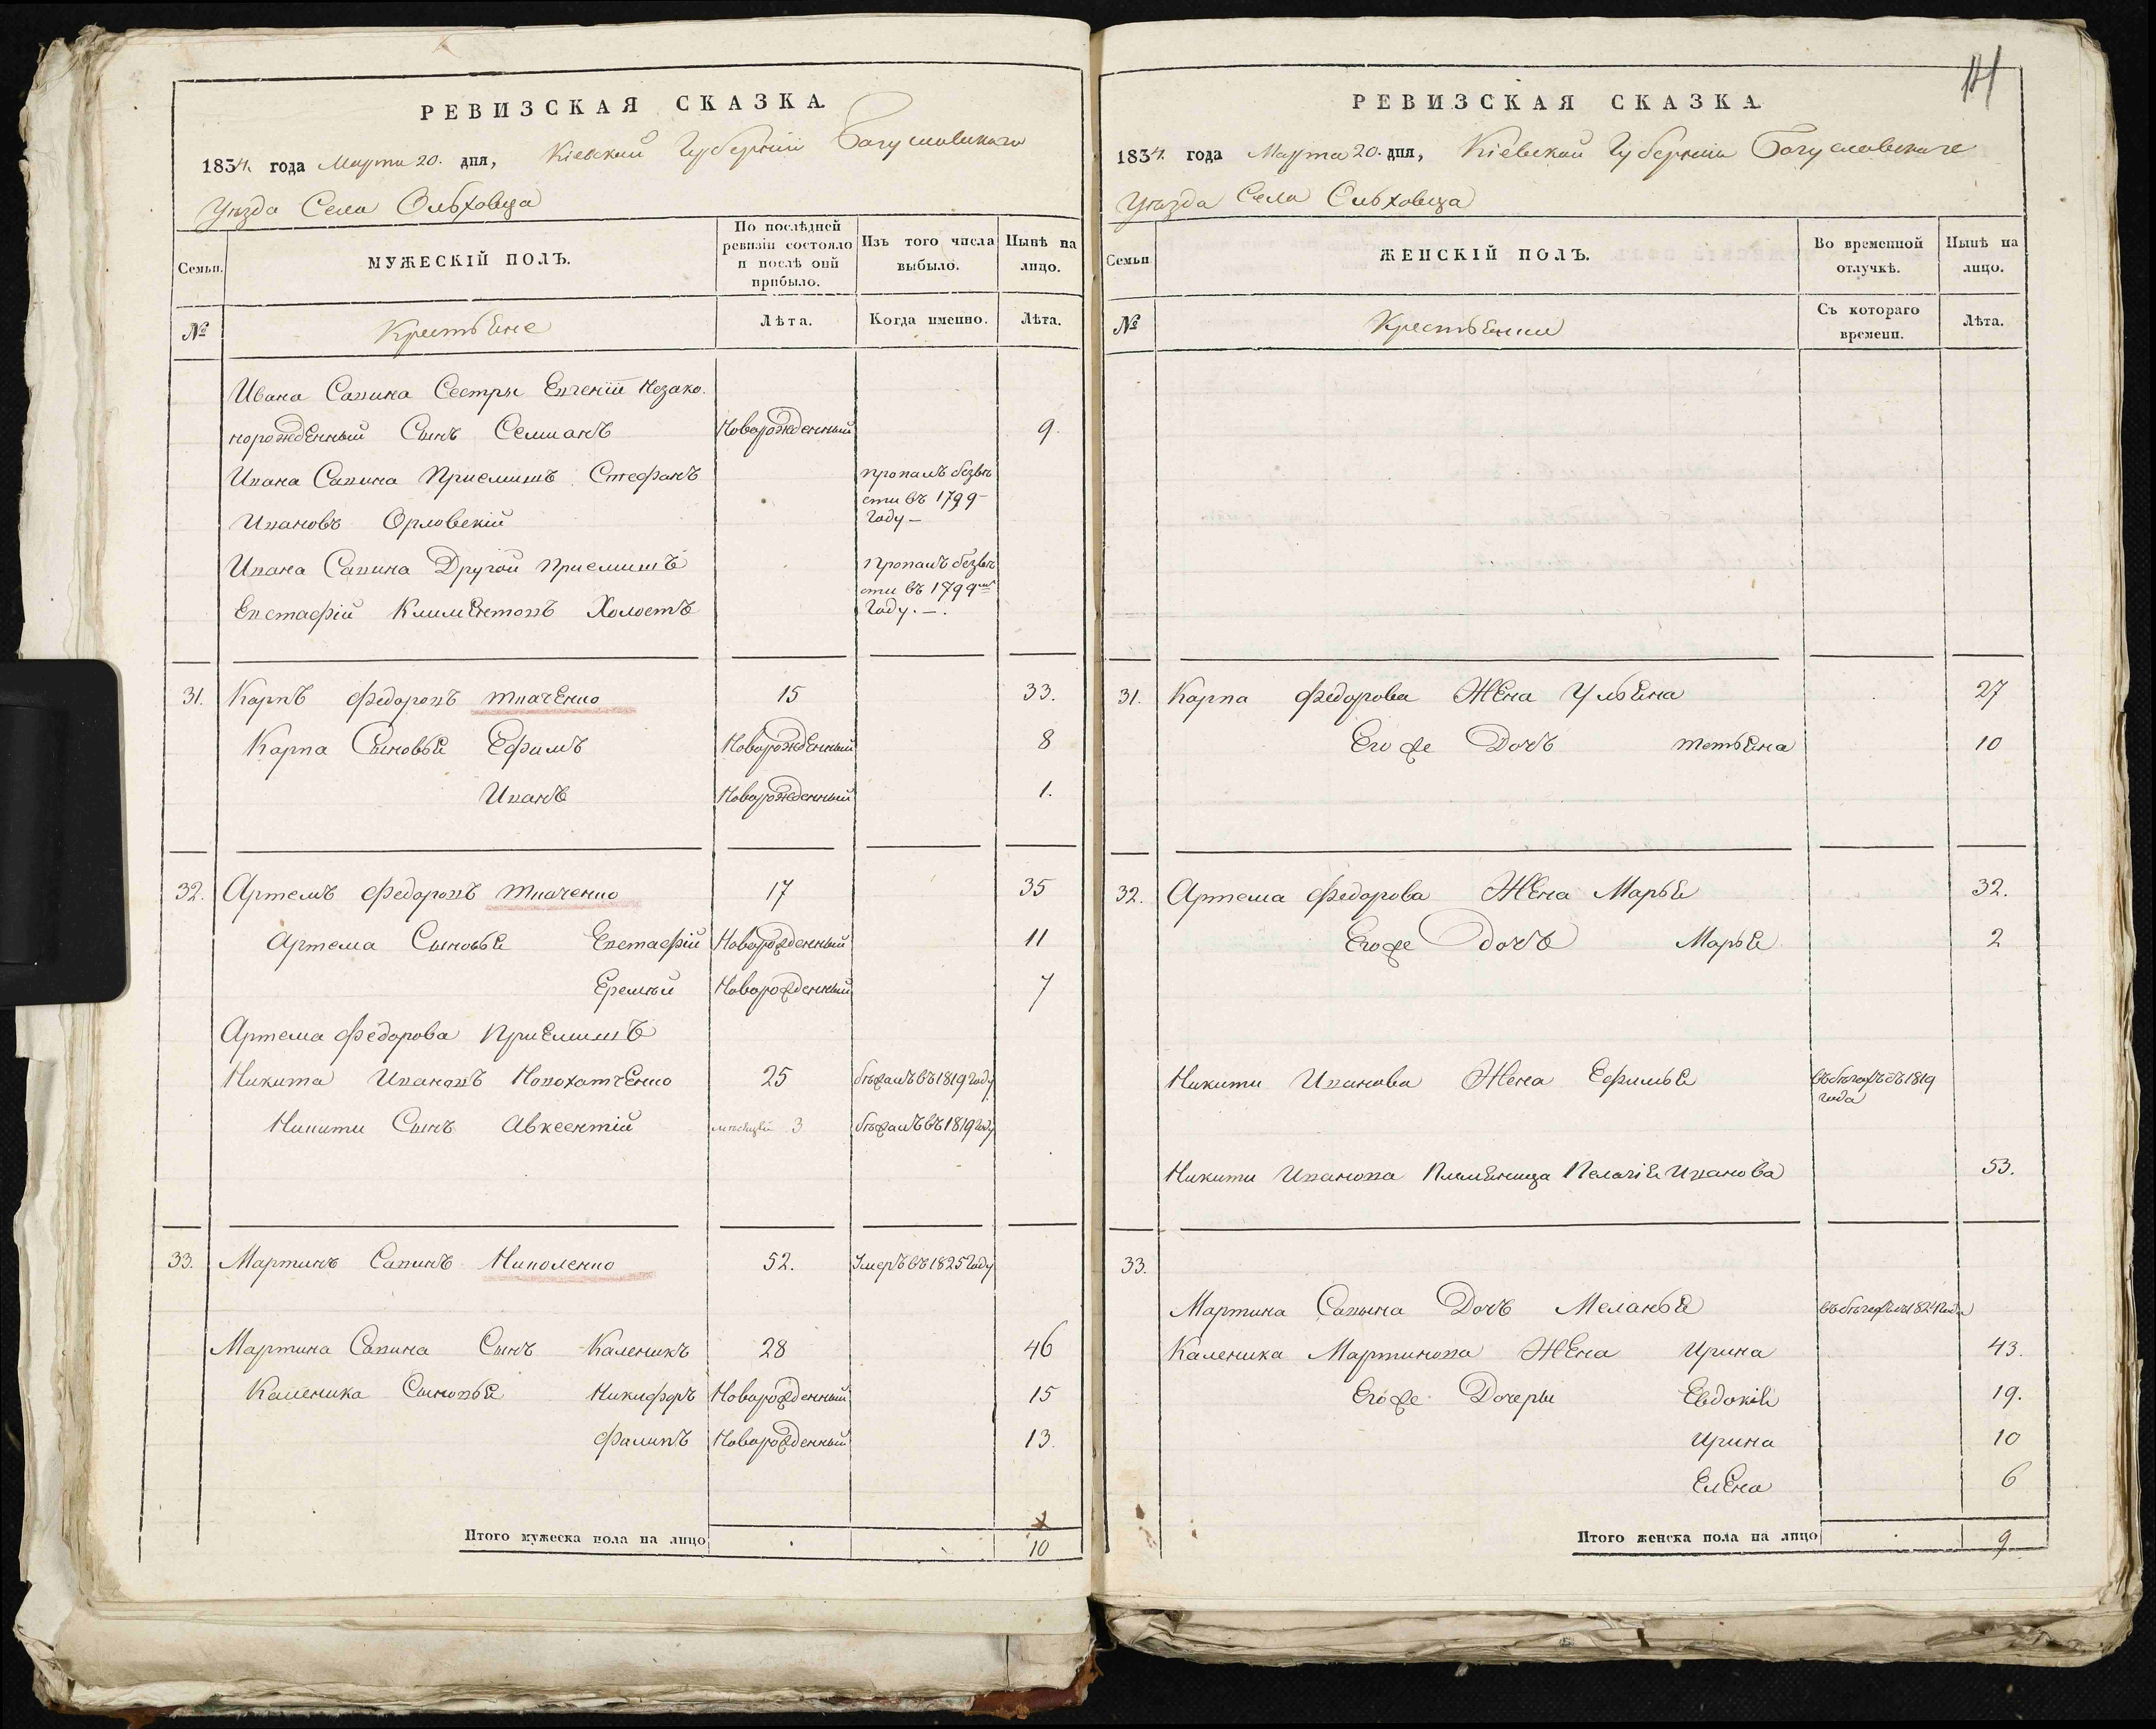 РЕВИЗСКАЯ СКАЗКА.
1834. года Марта 20. дня, Кіевской Губерніи Богуславскаго
Уѣзда Села Ольховца
Семьи.
МУЖЕСКІЙ ПОЛЪ.
По послѣдней ревизіи состояло и послѣ оній прибыло.
Изъ того числа выбыло.
Нынѣ на лицо.
№
Крестьяне
Лѣта.
Когда именно.
Лѣта.
Ивана Савина Сестры Евгеніи Незако.
норожденный Сынъ Семианъ Новорожденный 9.
Ивана Савина Приемишъ Стефанъ пропалъ безвѣ
сти въ 1799
Ивановъ Орловскій году
Ивана Савина Другой приемишъ пропалъ безвѣ
сти въ 1799
Евстафій Климентовъ Холостъ году.
31. Карпъ Федоровъ Ткаченко 15 33.
Карпа Сыновья Ефимъ Новорожденный 8
Иванъ Новорожденный 1.
32. Артемъ Федоровъ Ткаченко 17 35
Артема Сыновья Евстафій Новорожденный 11
Еремѣй Новорожденный 7
Артема Федорова Приемишъ
Никита Ивановъ Новохатченко 25 бѣжалъ въ 1819 году
Никити Сынъ Авксентій мѣсяцей 3 бѣжалъ въ 1819 году
33. Мартинъ Савинъ Николенко 52. Умеръ въ 1825 году
Мартина Савина Сынъ Каленикъ 28 46
Каленика Сыновья Никифоръ Новорожденный 15
Филипъ Новорожденный 13.
Итого мужеска пола на лицо 10
РЕВИЗСКАЯ СКАЗКА.
1834. года Марта 20. дня, Кіевской Губерніи Богуславскаго
Уѣзда Села Ольховца
Семьи
ЖЕНСКІЙ ПОЛЪ.
Во временной отлучкѣ.
Нынѣ на лицо.
№
Крестьянки
Съ котораго времени.
Лѣта.
31. Карпа Федорова Жена Ульяна 27
Его же Дочь Тетьяна 10
32. Артема Федорова Жена Марья 32.
Его же Дочь Марья 2
Никити Иванова Жена Ефимья въ бѣгахъ съ 1819
года
Никити Иванова Племеница Пелагія Иванова 53.
33.
Мартина Савина Дочь Меланья въ бѣгахъ съ 1824 года
Каленика Мартинова Жена Ирина 43.
Его же Дочеры Евдокія 19.
Ирина 10
Елена 6
Итого женска пола на лицо 9